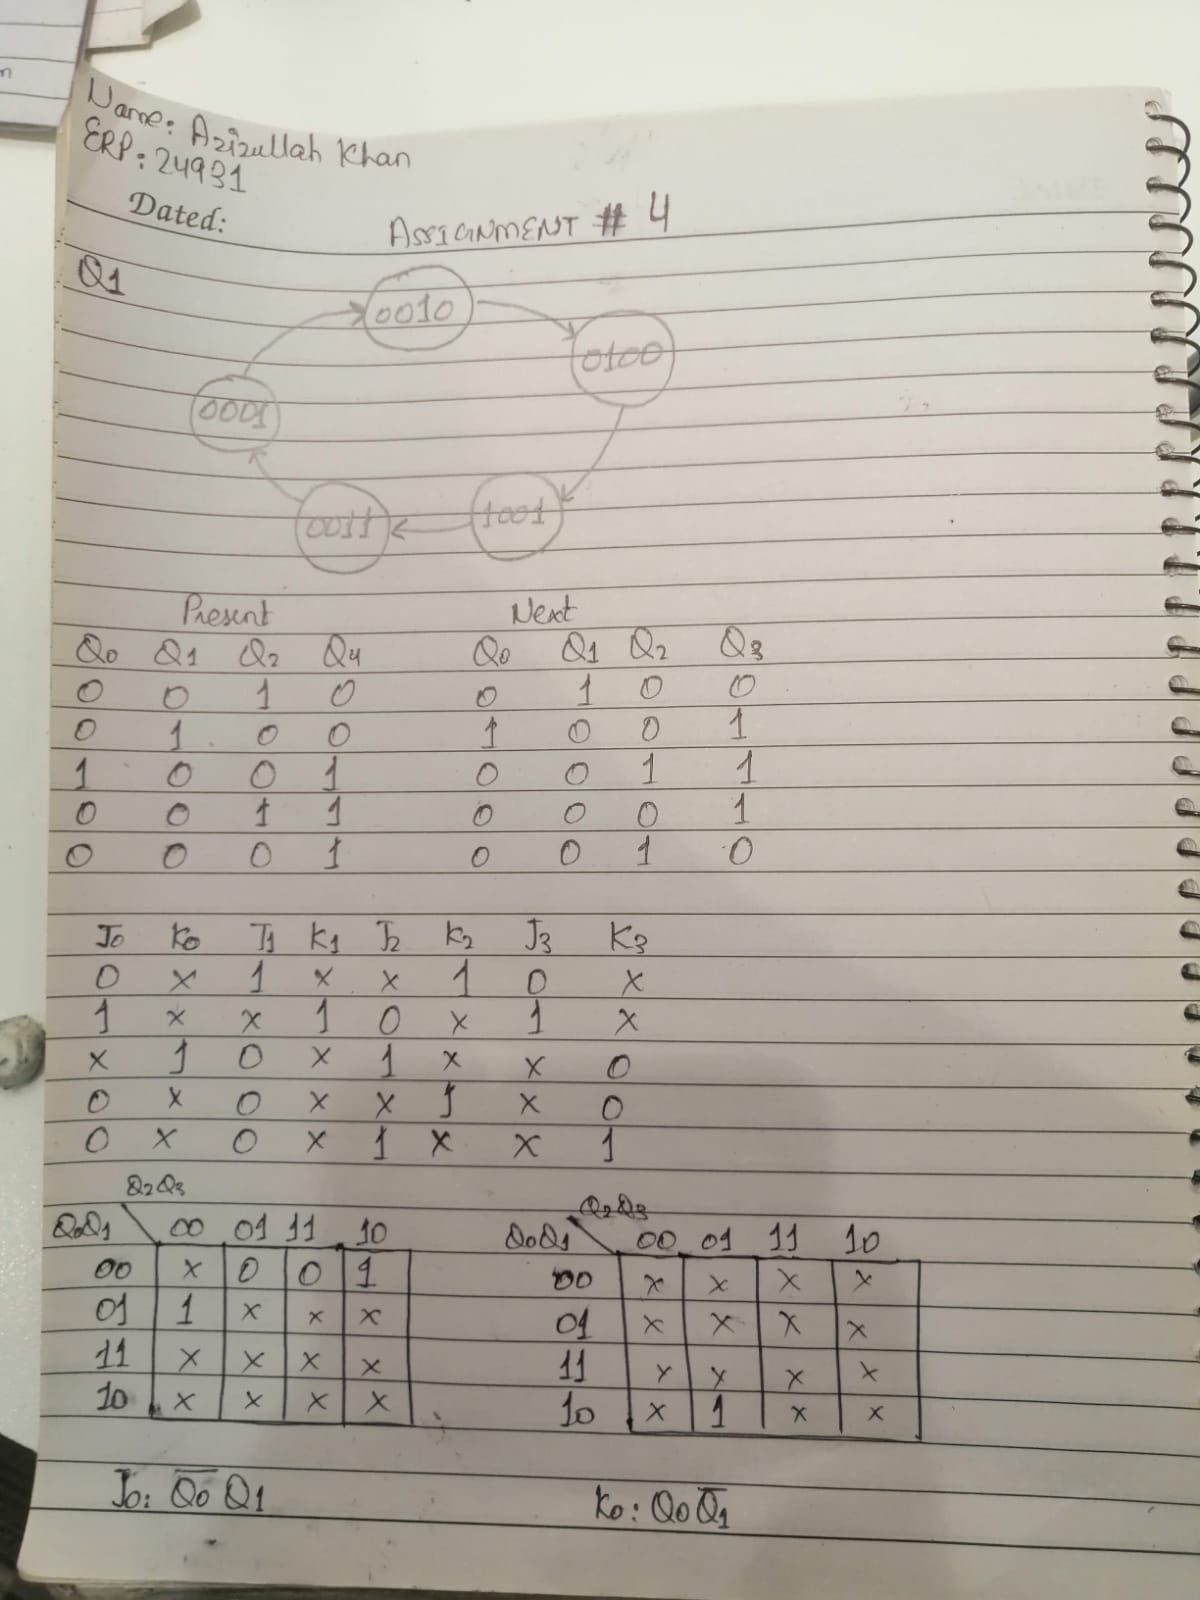 n
Name: Azizullah Khan
ERP: 24931
Dated:
ASSIGNMENT # 4
Q1
0010
0100
0001
1001
0011
Present Next
Q0 Q1 Q2 Q4 Q0 Q1 Q2 Q3
0 0 1 0 0 1 0 0
0 1 0 0 1 0 0 1
1 0 0 1 0 0 1 1
0 0 1 1 0 0 0 1
0 0 0 1 0 0 1 0
J0 K0 J1 K1 J2 K2 J3 K3
0 x 1 x x 1 0 x
1 x x 1 0 x 1 x
x 1 0 x 1 x x 0
0 x 0 x x 1 x 0
0 x 0 x 1 x x 1
Q2Q3 Q2Q3
Q0Q1 00 01 11 10 Q0Q1 00 01 11 10
00 x 0 0 1 00 x x x x
01 1 x x x 01 x x x x
11 x x x x 11 x x x x
10 x x x x 10 x 1 x x
J0: Q̅0̅ Q1 K0: Q0 Q̅1